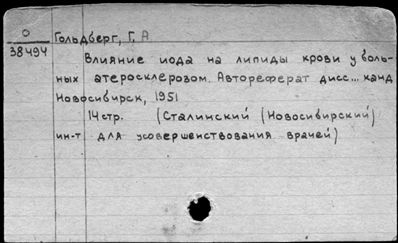 О Гольдберг, Г. А
38494
Влияние иода на липиды крови у боль-
ных атеросклерозом. Автореферат дисс... канд
Новосибирск, 1951
14 стр. (Сталинский (Новосибирский)
ин-т для усовершенствования врачей)